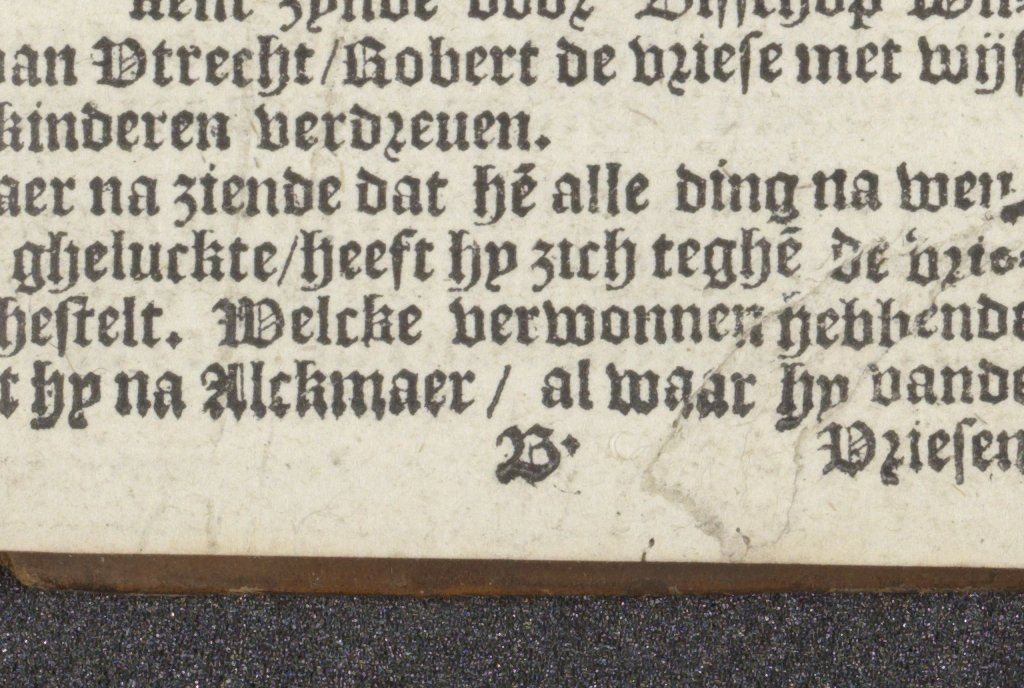 hem zynde door Bisschop Wil-
van Vtrecht/Robert de vriese met wijf
kinderen verdreuen.
aer na ziende dat hē alle ding na wen
gheluckte/heeft hy zich teghē de vrie-
hestelt. Welcke verwonnen hebbende
t hy na Alckmaer / al waar hy vande
B.
Vriesen